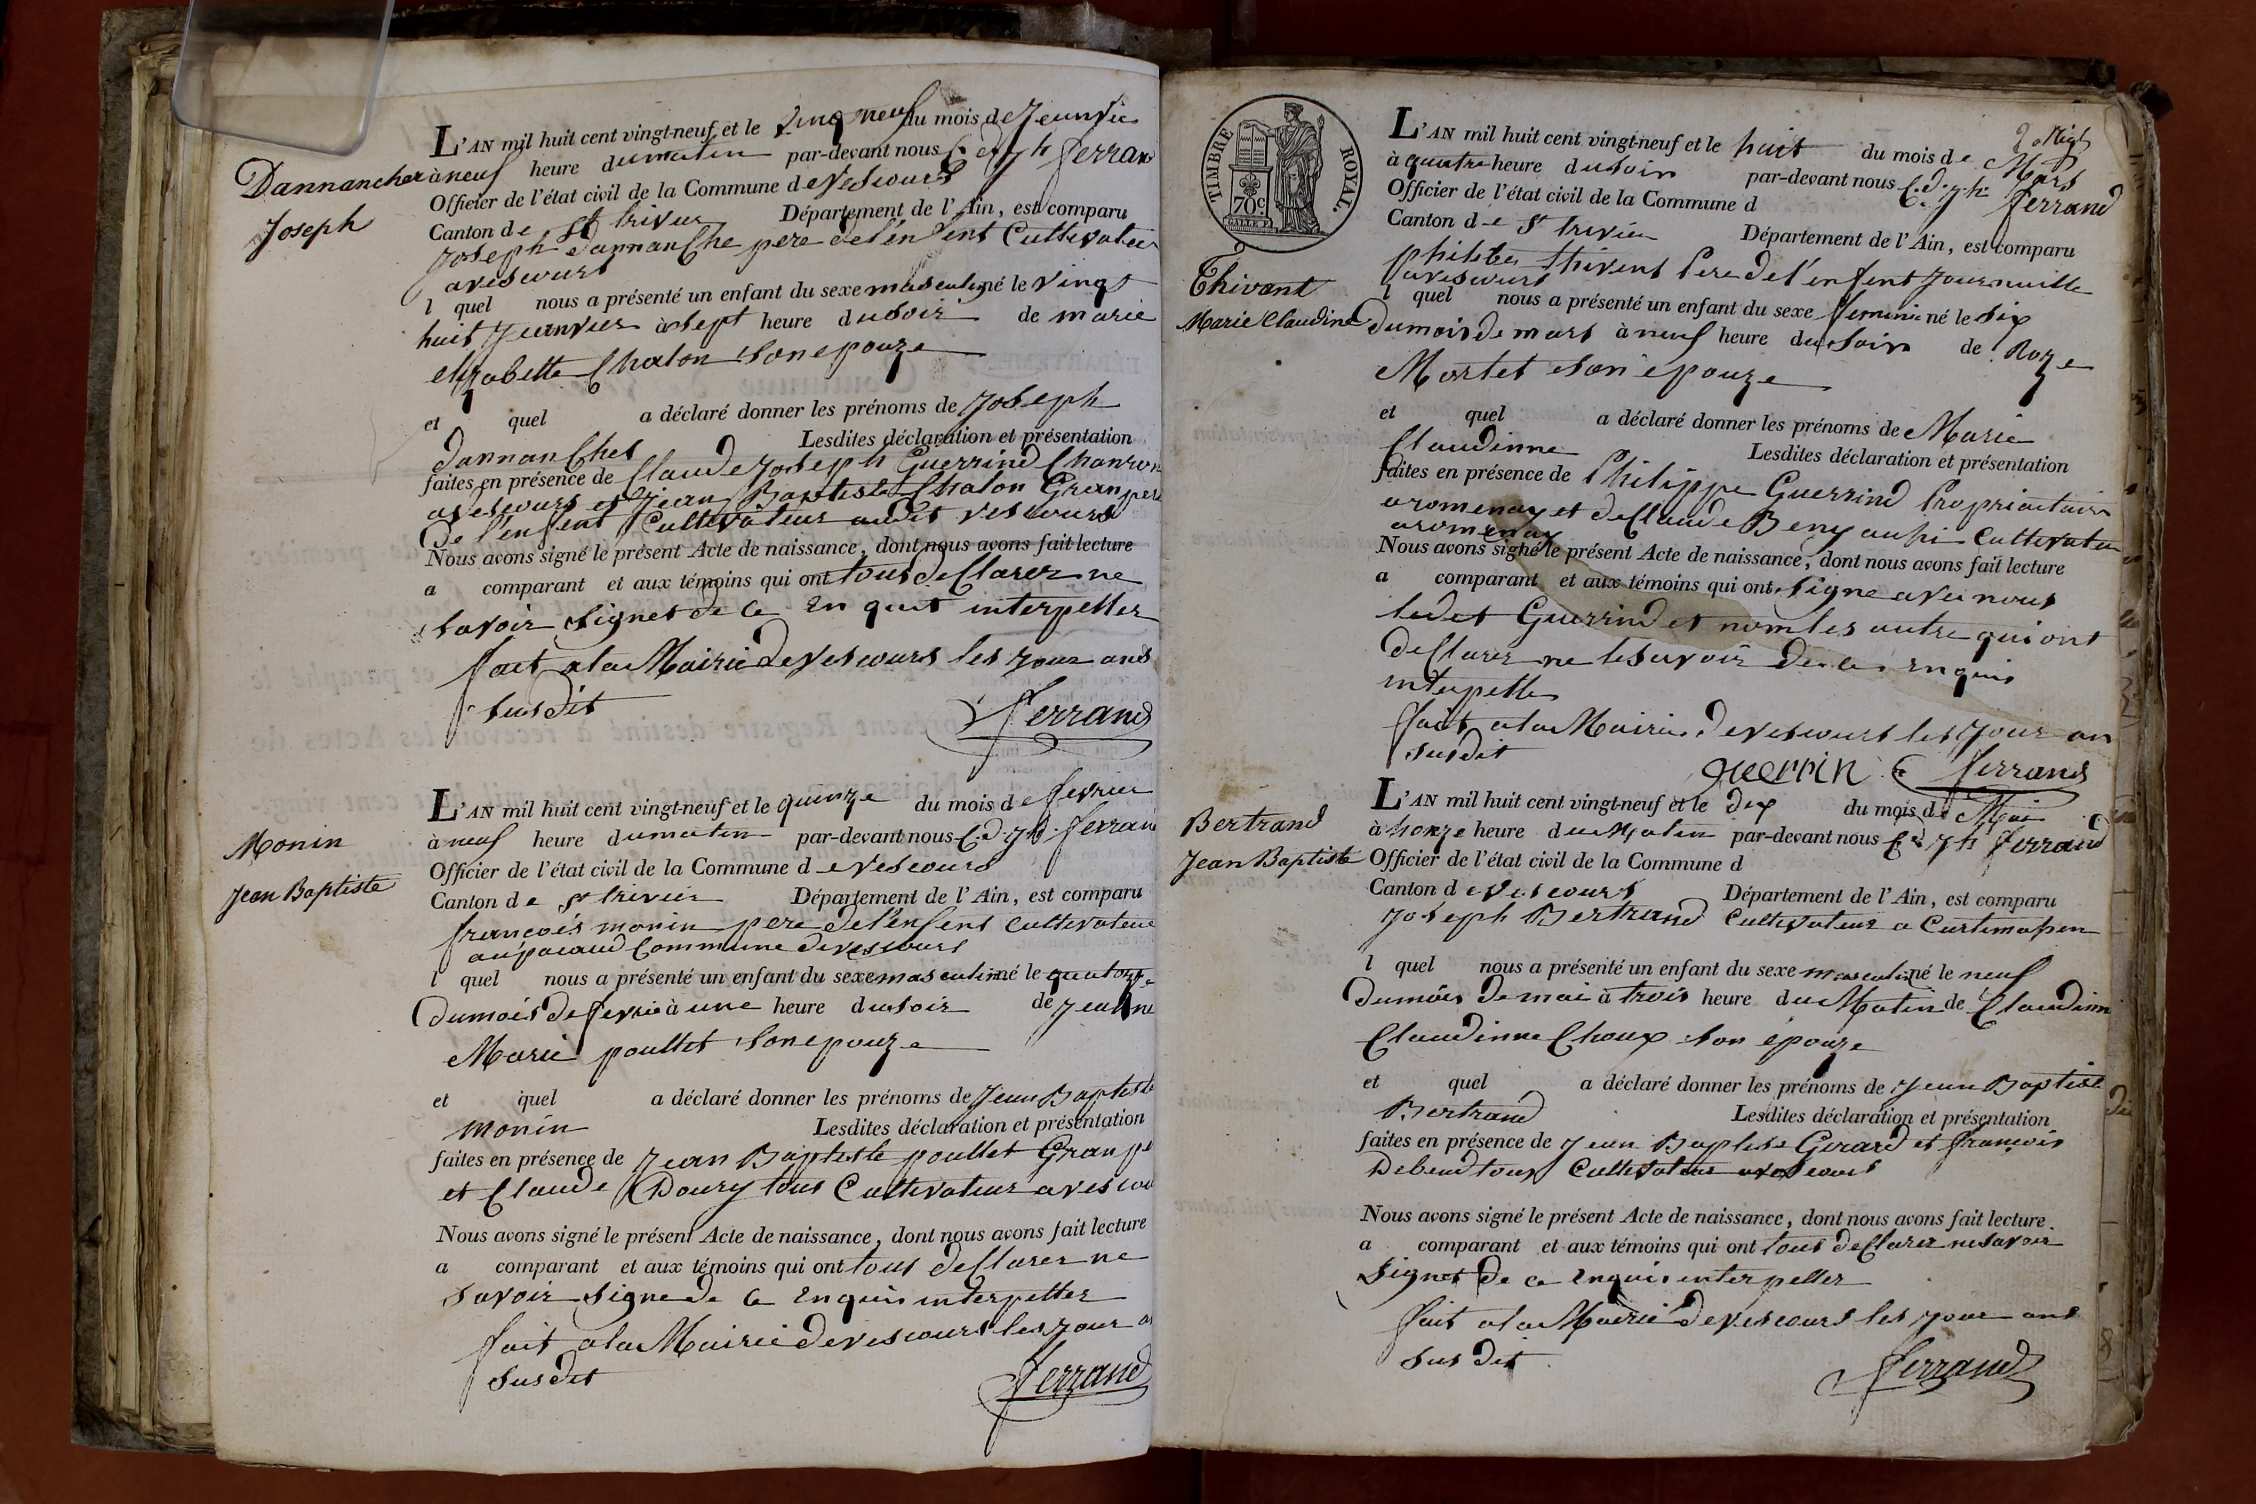 Dannancher
Joseph
L'AN mil huit cent vingt-neuf et le vingt neuf du mois de jeanvier
à neuf heure du matin par-devant nous C. d. jh ferrand
Officier de l'état civil de la Commune de vescours
Canton de St trivier Département de l'Ain, est comparu
joseph dannanche pere de l'enfent Cultivateur
a vescours
l quel nous a présenté un enfant du sexe masculin né le vingt
huit jeanvier à sept heure du soir de marie
elizabette Chalon son epouze
et quel a déclaré donner les prénoms de joseph
dannanches Lesdites déclaration et présentation
faites en présence de Claude joseph Guerrind Charron
a vescours et jean Baptiste Chalon Gran pere
de l'enfent Cultivateur audit vescours
Nous avons signé le présent Acte de naissance, dont nous avons fait lecture
a comparant et aux témoins qui ont tous desclarez ne
savoir signer de ce enquit interpeller
fait a la Mairie de vescours les jour ans
susdit
ferrand
Monin
Jean Baptiste
L'AN mil huit cent vingt-neuf et le quinze du mois de fevrier
à neuf heure du matin par-devant nous C. d. jh. ferrand
Officier de l'état civil de la Commune de vescours
Canton de St trivier Département de l'Ain, est comparu
francois monin pere de l'enfent cultivateur
Commune de vescours
l quel nous a présenté un enfant du sexe masculin né le quatorze
du mois de fevrié à une heure du soir de jeanne
Marie poullet son epouze
et quel a déclaré donner les prénoms de jean Baptiste
monin Lesdites déclaration et présentation
faites en présence de jean Baptiste poullet Gran pe
et Claude Doury tous Cultivateur a vescou
Nous avons signé le présent Acte de naissance, dont nous avons fait lecture
a comparant et aux témoins qui ont tous desclarer ne
savoir signe de ce enquis interpeller
fait a la Mairie de vescours les jour
susdit
ferrand
TIMBRE ROYAL.
70c.
Thivant
Marie Claudine
L'AN mil huit cent vingt-neuf et le huit du mois de Mars
à quatre heure du soir par-devant nous C. d. jh. ferrand
Officier de l'état civil de la Commune d
Canton de St trivier Département de l'Ain, est comparu
thivent Pere de l'enfent journaille
a vescours
l quel nous a présenté un enfant du sexe feminin né le six
du mois de mars à neuf heure du soir de Roze
Mortet son épouze
et quel a déclaré donner les prénoms de Marie
Claudinne Lesdites déclaration et présentation
faites en présence de Philippe Guerrind Propriaitair
a romenay et de Claude Beny aussi Cultivateu
a romenay
Nous avons signé le présent Acte de naissance, dont nous avons fait lecture
a comparant et aux témoins qui ont signe avec nous
ledet Guerrind et nom les autre qui ont
desclarer ne le savoir de ce enquis
interpelle
fait a la Mairie de vescours les jour an
susdit
guerrin ferrand
Bertrand
Jean Baptiste
L'AN mil huit cent vingt-neuf et le dix du mois de Mai
à honze heure du Matin par-devant nous C. d. jh ferrand
Officier de l'état civil de la Commune d
Canton de vescours Département de l'Ain, est comparu
joseph Bertrand Cultivateur a Curtimapen
l quel nous a présenté un enfant du sexe masculin né le neuf
du mois de mai à trois heure du Matin de Claudinn
Claudinne Choux son épouze
et quel a déclaré donner les prénoms de jean Baptiste
Bertrand Lesdites déclaration et présentation
faites en présence de jean Baptiste Girard et françois
tous Cultivateur a vescours
Nous avons signé le présent Acte de naissance, dont nous avons fait lecture
a comparant et aux témoins qui ont tous desclarer ne savoir
signer de ce enquis interpeller
fait a la Mairie de vescours les jour ans
susdit
ferrand